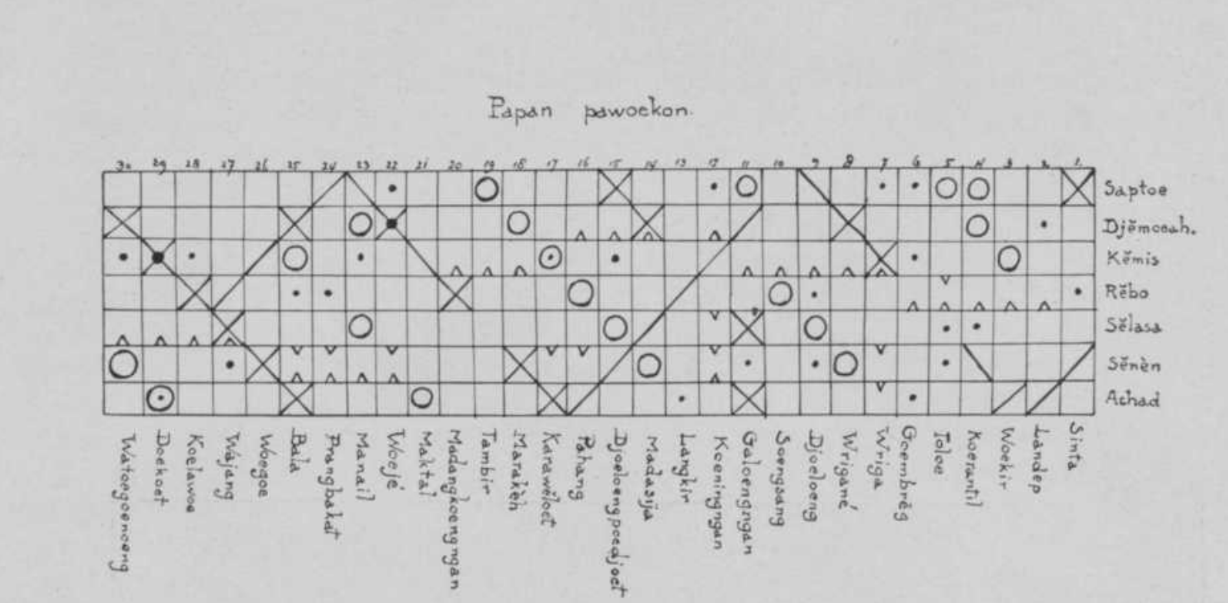 Papan pawoekon.
30 29 28 27 26 25 24 23 22 21 20 19 18 17 16 15 14 13 12 11 10 9 8 7 6 5 4 3 2 1.
Saptoe
Djĕmoeah.
Kĕmis
Rĕbo
Sĕlasa
Sĕnèn
Achad
Watoegoenoeng
Doekoet
Koelawoe
Wajang
Woegoe
Bala
Prangbakat
Manail
Woejé
Maktal
Madangkoengngan
Tambir
Marakèh
Karawĕloet
Pahang
Djoeloengpoedjoet
Madasija
Langkir
Koeningngan
Galoengngan
Soengsang
Djoeloeng
Wrigané
Wriga
Goembrĕg
Toloe
Koerantil
Woekir
Landep
Sinta